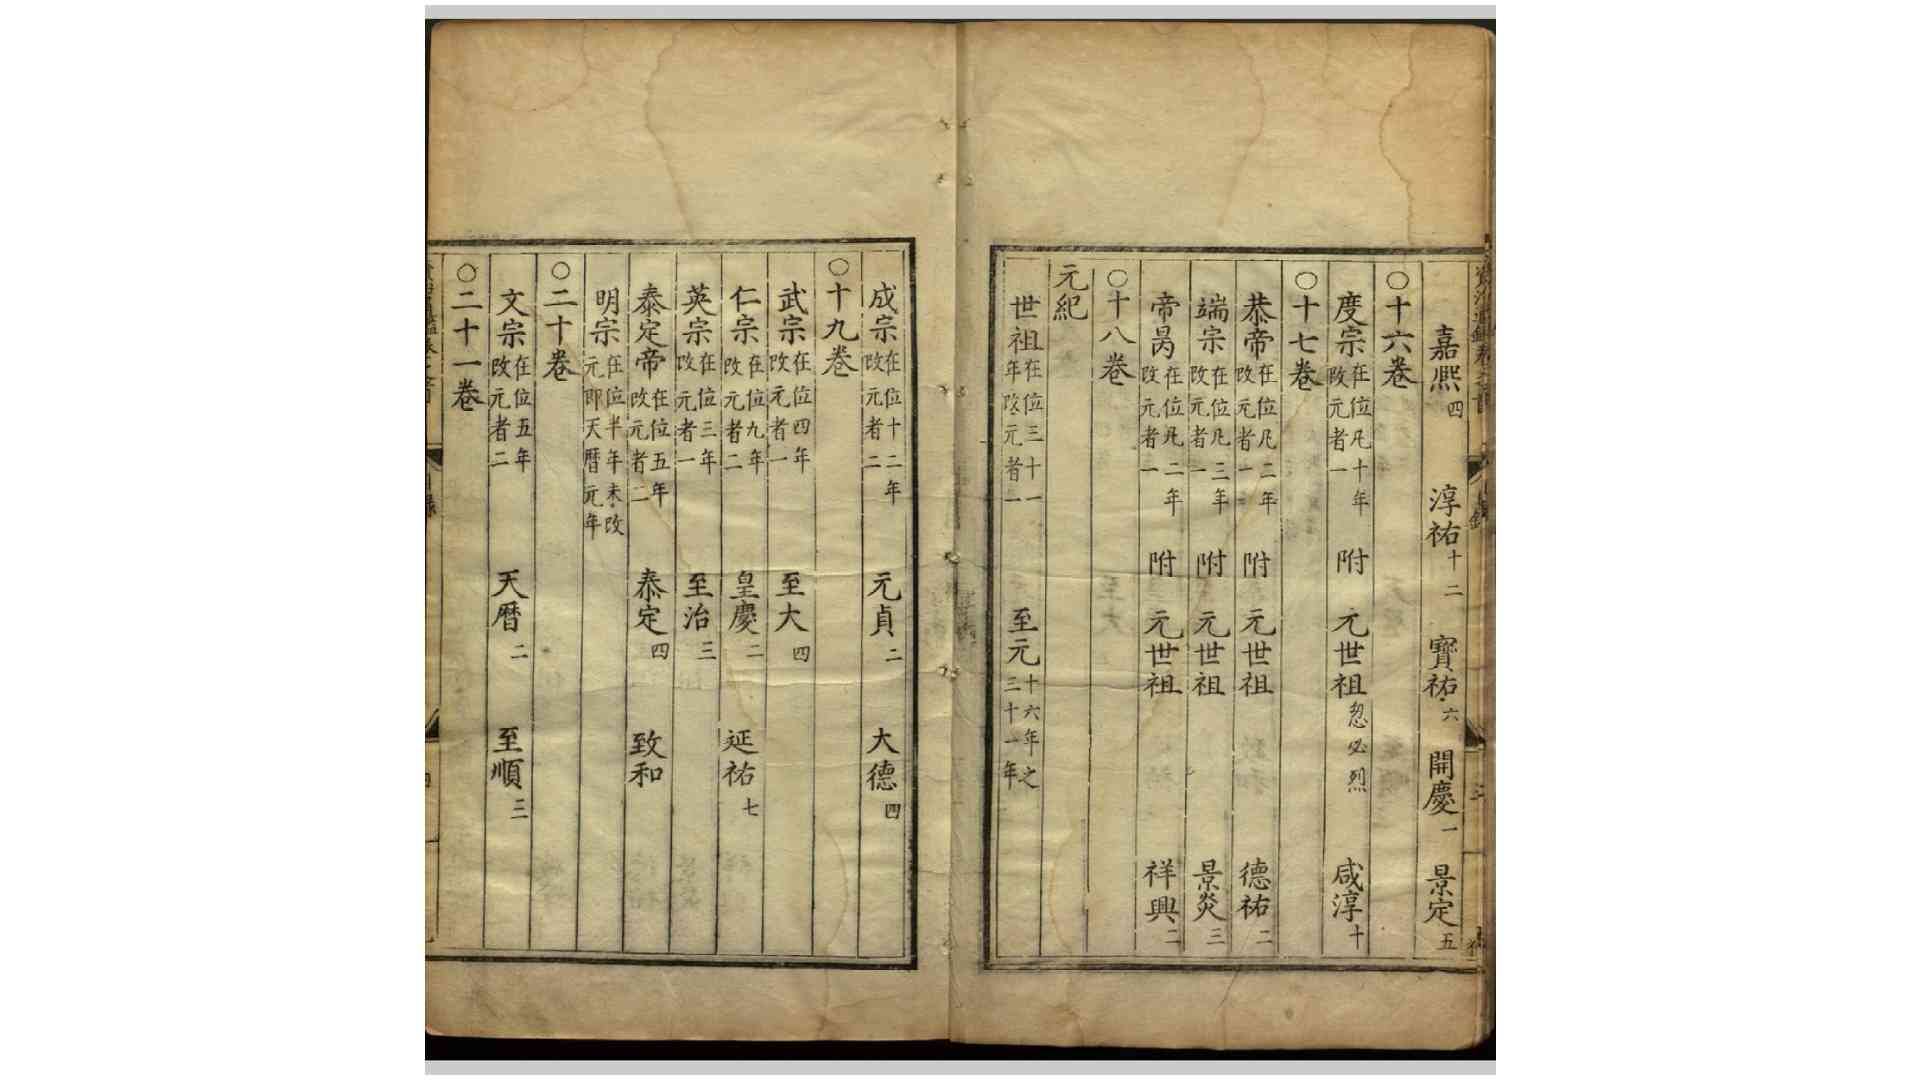 嘉熈四 淳祐十二 寳祐六 開慶一 景定五
○十六卷
度宗在位凡十年改元者一 附 元世祖忽必烈 咸淳十
○十七卷
恭帝在位凡二年改元者一 附 元世祖 德祐二
端宗在位凡三年改元者一 附 元世祖 景炎三
帝昺在位凡二年改元者一 附 元世祖 祥興二
○十八卷
元紀
世祖在位三十一年改元者一 至元十六年之三十一年
成宗在位十二年改元者二 元貞二 大德四
○十九卷
武宗在位四年改元者一 至大四
仁宗在位九年改元者二 皇慶二 延祐七
英宗在位三年改元者一 至治三
泰定帝在位五年改元者二 泰定四 致和
明宗在位半年未改元即天曆元年
○二十卷
文宗在位五年改元者二 天曆二 至順三
○二十一卷